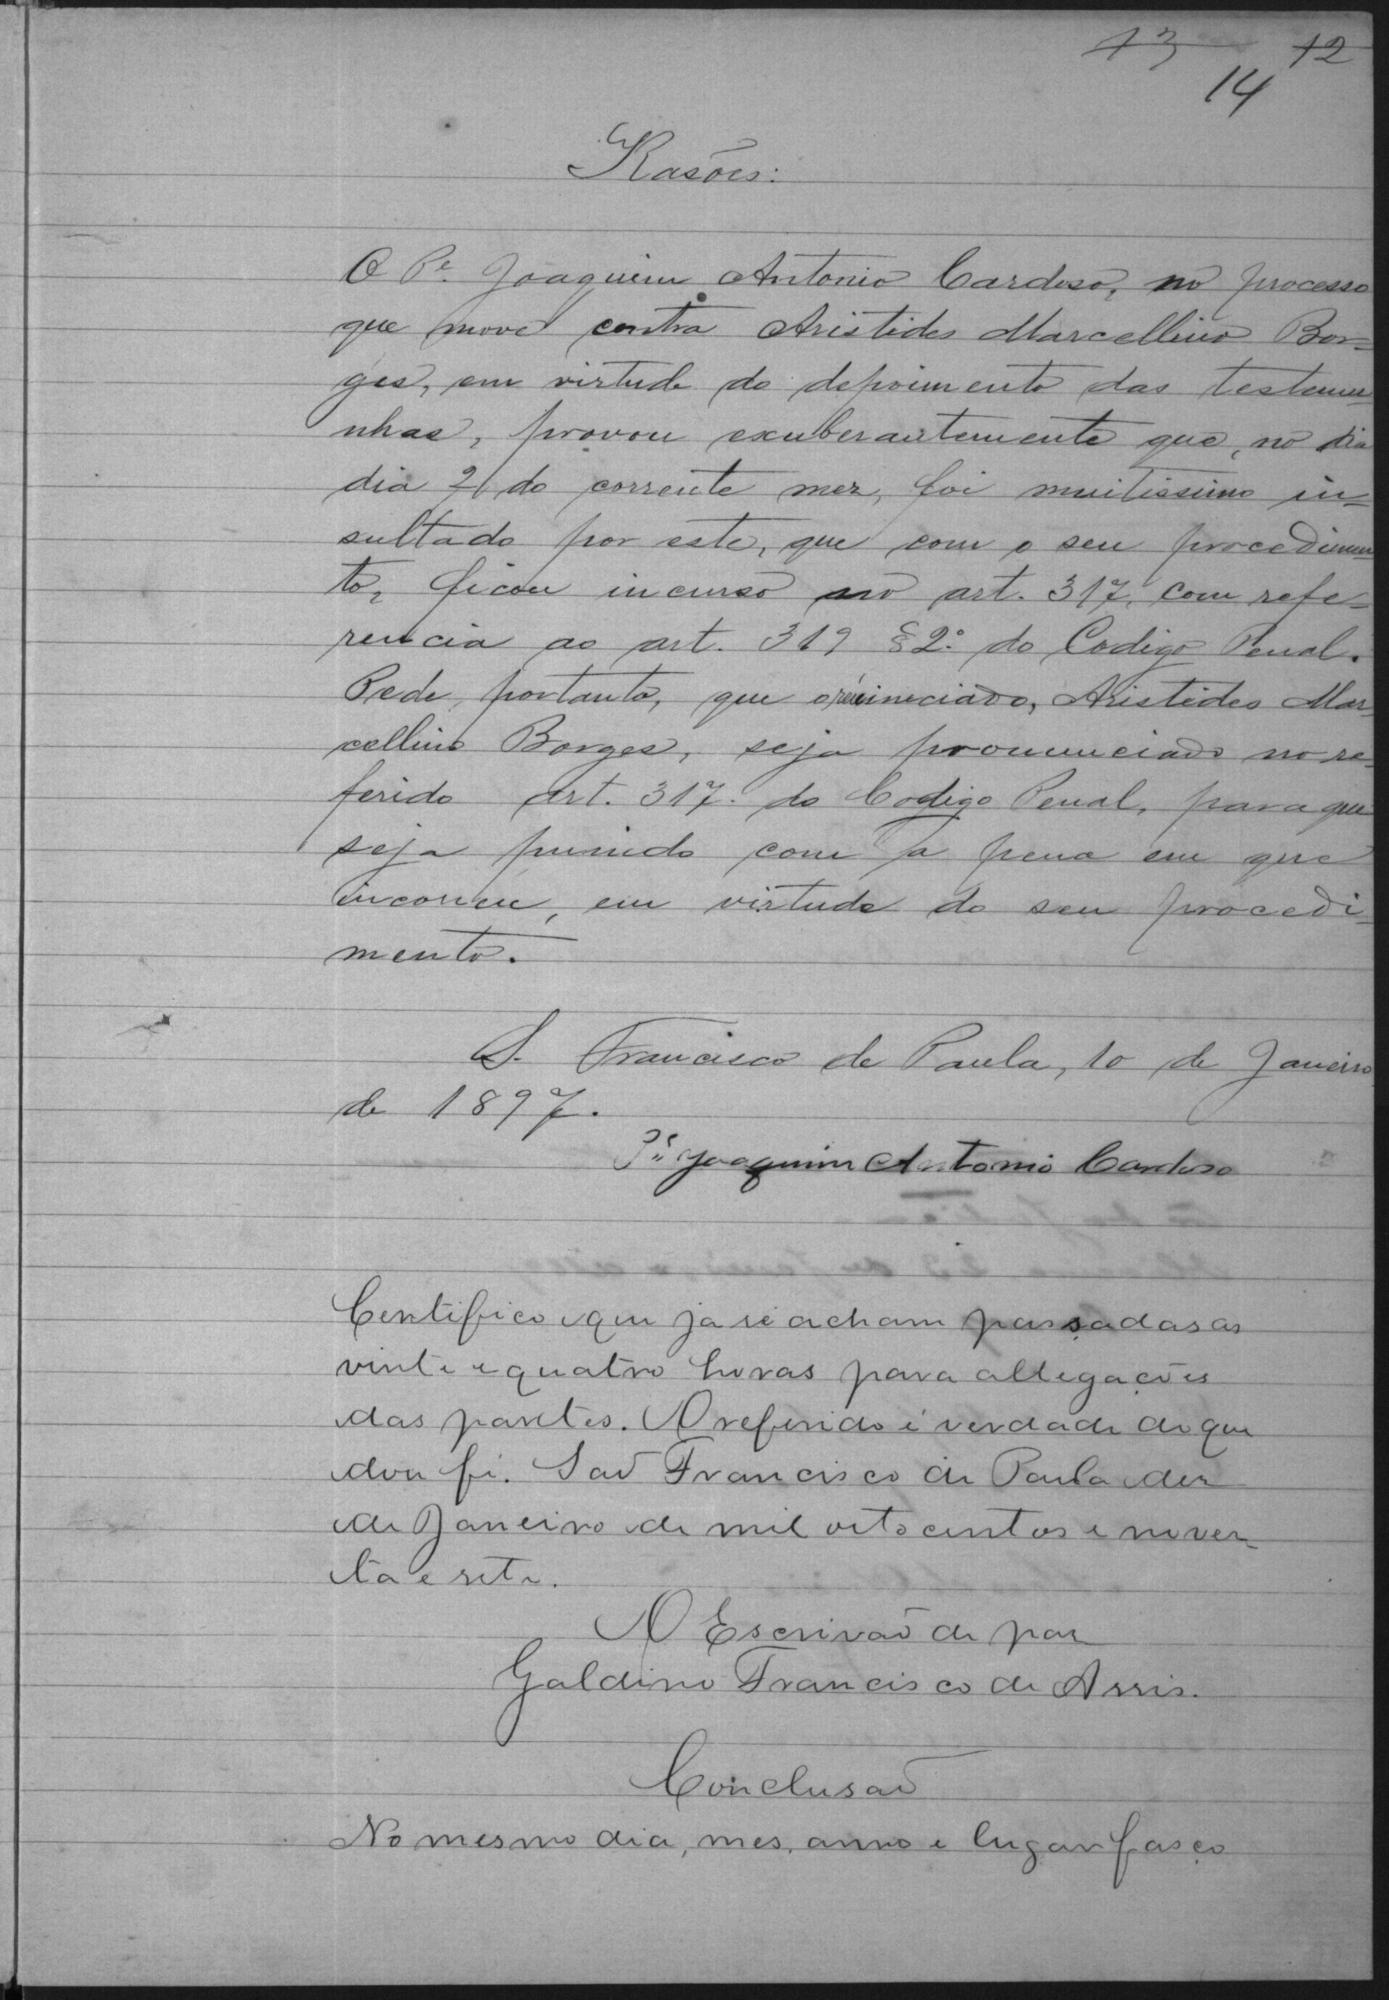 13 12
14
Rasões:
O P.e Joaquim Antonio Cardoso, no processo
que move contra Aristides Marcellino Bor=
ges, em virtude do depoimento das testemu=
nhas, provou exuberantemente que, no dia
dia 2 do corrente mez, foi muitissimo in=
sultado por este, que com o seu procedimen=
to, ficou incurso no art. 317, com refe=
rencia ao art. 319 § 2º do Codigo Penal.
Pede, portanto, que o Aristides Mar=
cellino Borges, seja pronunciado no re=
ferido art. 317. do Codigo Penal, para que
seja punido com a pena em que
incorreu, em virtude do seu procedi=
mento.
S. Francisco de Paula, 10 de Janeiro
de 1897.
P.e Joaquim Antonio Cardoso
Certifico que ja se acham passadas as
vinte e quatro horas para allegações
das partes. O referido é verdade do que
dou fé. Saõ Francisco de Paula dez
de Janeiro de mil oito centos e noven=
ta e sete.
O Escrivaõ de paz
Galdino Francisco de Assis.
Conclusaõ
No mesmo dia, mes, anno e lugar fasço